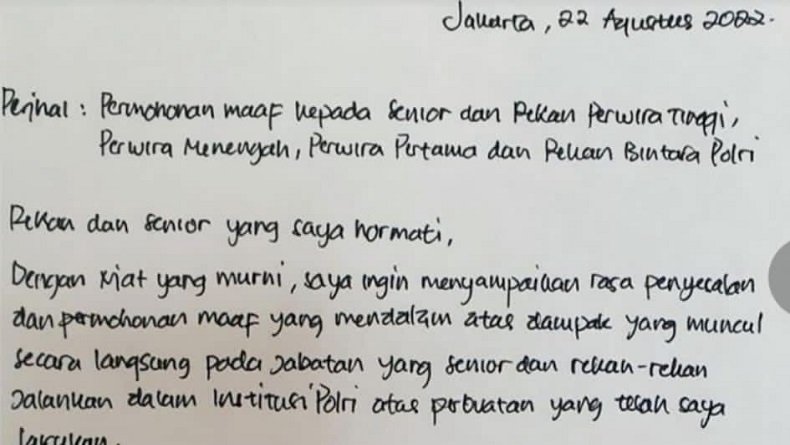 Jakarta, 22 Agustus 2022.
Perihal : Permohonan maaf kepada Senior dan Rekan Perwira Tinggi,
Perwira Menengah, Perwira Pertama dan Rekan Bintara Polri
Rekan dan senior yang saya hormati,
Dengan niat yang murni, saya ingin menyampaikan rasa penyesalan
dan permohonan maaf yang mendalam atas dampak yang muncul
secara langsung pada jabatan yang senior dan rekan-rekan
jalankan dalam institusi Polri atas perbuatan yang telah saya
lakukan.